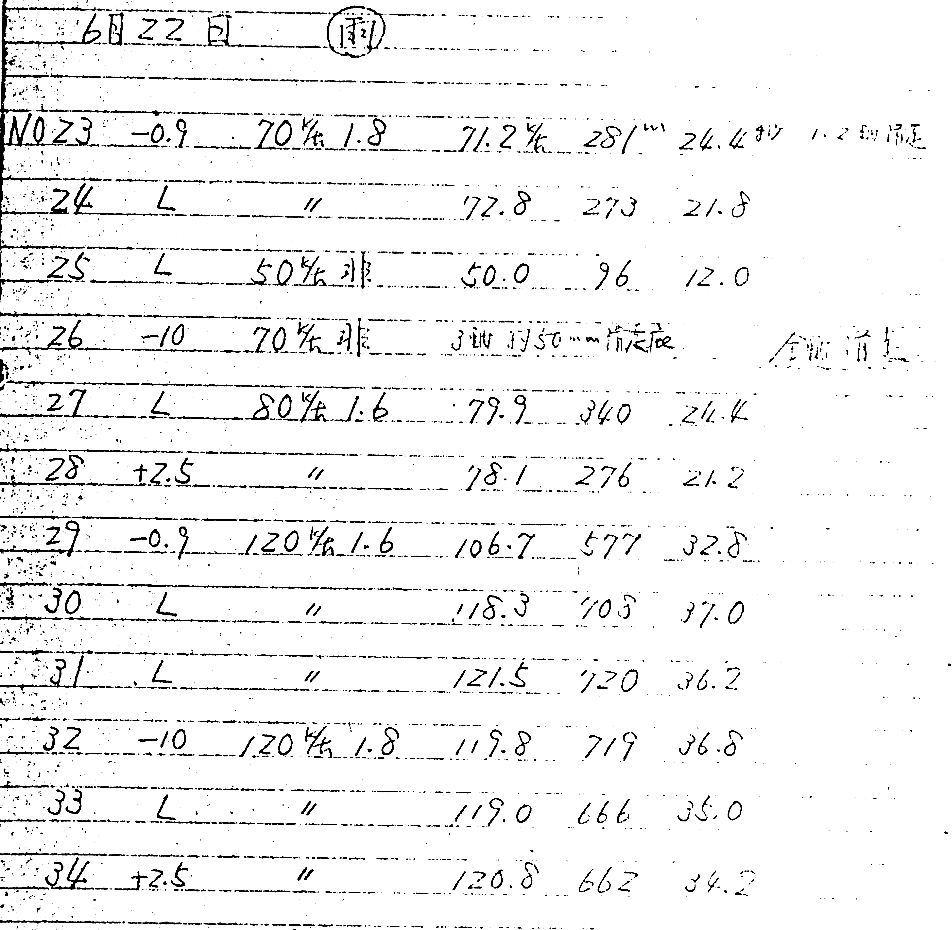 6月22日 雨
NO23 -0.9 70㎞/h 1.8 71.2㎞/h 281m 24.4秒 1.2軸滑走
24 L 〃 72.8 273 21.8
25 L 50㎞/h 非 50.0 96 12.0
26 -10 70㎞/h 非 3軸 約50m 滑走 全軸滑走
27 L 80㎞/h 1.6 79.9 340 24.4
28 +2.5 〃 78.1 276 21.2
29 -0.9 120㎞/h 1.6 106.7 577 32.8
30 L 〃 118.3 708 37.0
31 L 〃 121.5 720 36.2
32 -10 120㎞/h 1.8 119.8 719 36.8
33 L 〃 119.0 666 35.0
34 +2.5 〃 120.8 662 34.2